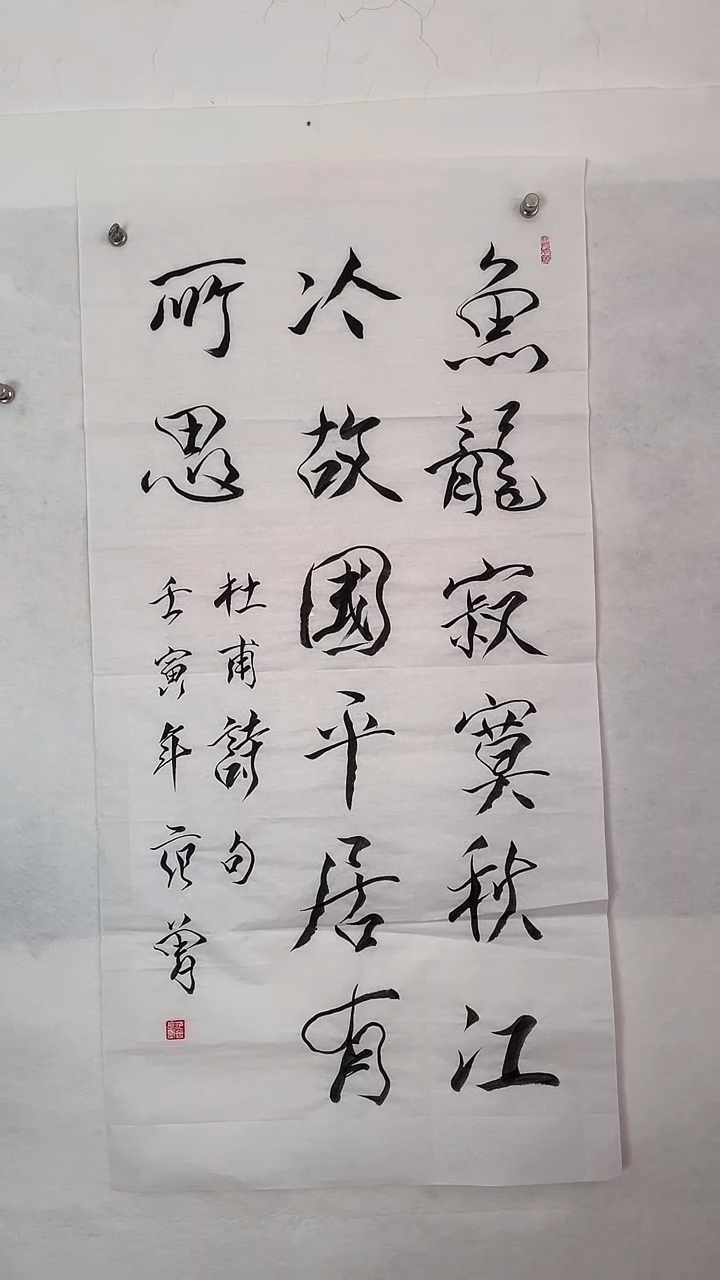 魚龍寂寞秋江
冷故國平居有
所思
杜甫詩句
壬寅年范曾